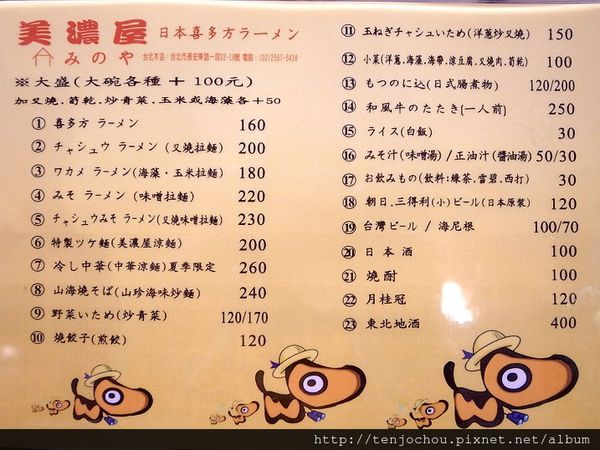 美濃屋 日本喜多方ラーメン
みのや
※大盛(大碗各種＋100元)
加叉燒.筍乾.炒青菜.玉米或海藻各＋50
① 喜多方 ラーメン 160
② チャシュウ ラーメン (叉燒拉麵) 200
③ ワカメ ラーメン(海藻・玉米拉麵) 180
④ みそ ラーメン (味噌拉麵) 220
⑤ チャシュウみそ ラーメン(叉燒味噌拉麵) 230
⑥ 特製ツケ麵(美濃屋涼麵) 200
⑦ 冷し中華(中華涼麵)夏季限定 260
⑧ 山海燒そば(山珍海味炒麵) 240
⑨ 野菜いため(炒青菜) 120/170
⑩ 燒餃子(煎餃) 120
⑪ 玉ねぎチャシュいため(洋蔥炒叉燒) 150
⑫ 小菜(洋蔥.海藻.海帶.涼豆腐.叉燒肉.筍乾) 100
⑬ もつのに込(日式腸煮物) 120/200
⑭ 和風牛のたたき(一人前) 250
⑮ ライス(白飯) 30
⑯ みそ汁(味噌湯)/正油汁(醬油湯) 50/30
⑰ お飲みもの(飲料:綠茶.雪碧.西打) 30
⑱ 朝日.三得利(小)ビール(日本原裝) 120
⑲ 台灣ビール / 海尼根 100/70
⑳ 日本酒 100
㉑ 燒酎 100
㉒ 月桂冠 120
㉓ 東北地酒 400
http://tenjochou.pixnet.net/album